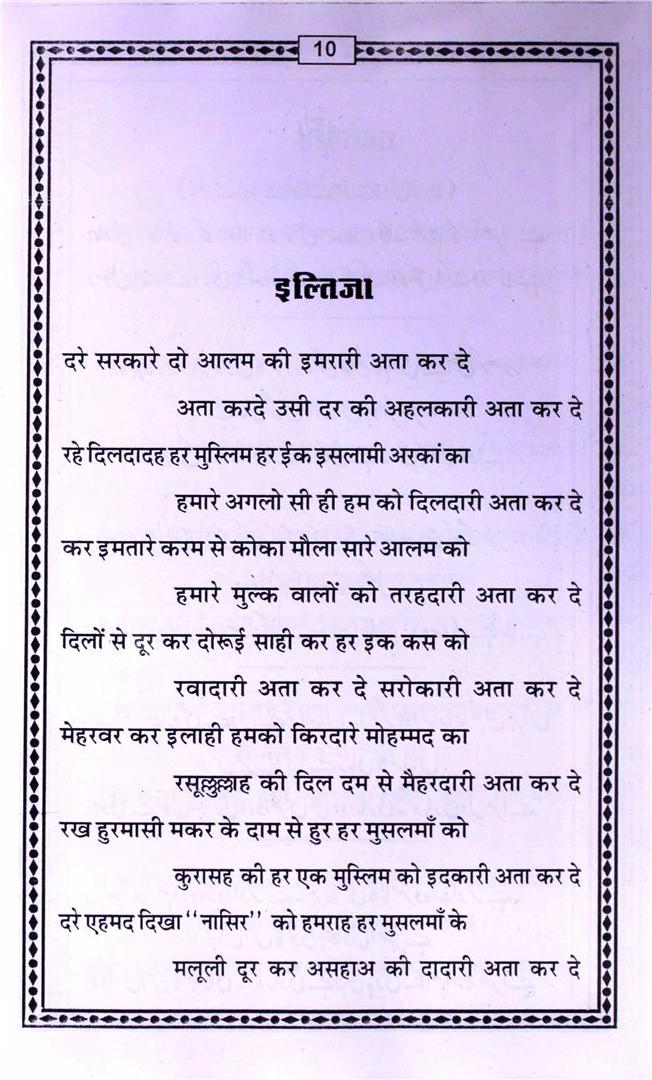 10
इल्तिजा
दरे सरकारे दो आलम की इमरारी अता कर दे
अता करदे उसी दर की अहलकारी अता कर दे
रहे दिलदादह हर मुस्लिम हर ईक इसलामी अरकां का
हमारे अगलो सी ही हम को दिलदारी अता कर दे
कर इमतारे करम से कोका मौला सारे आलम को
हमारे मुल्क वालों को तरहदारी अता कर दे
दिलों से दूर कर दोरूई साही कर हर इक कस को
रवादारी अता कर दे सरोकारी अता कर दे
मेहरवर कर इलाही हमको किरदारे मोहम्मद का
रसूल्लुल्लाह की दिल दम से मैहरदारी अता कर दे
रख हुरमासी मकर के दाम से हुर हर मुसलमाँ को
कुरासह की हर एक मुस्लिम को इदकारी अता कर दे
दरे एहमद दिखा ‘‘नासिर’’ को हमराह हर मुसलमाँ के
मलूली दूर कर असहाअ की दादारी अता कर दे